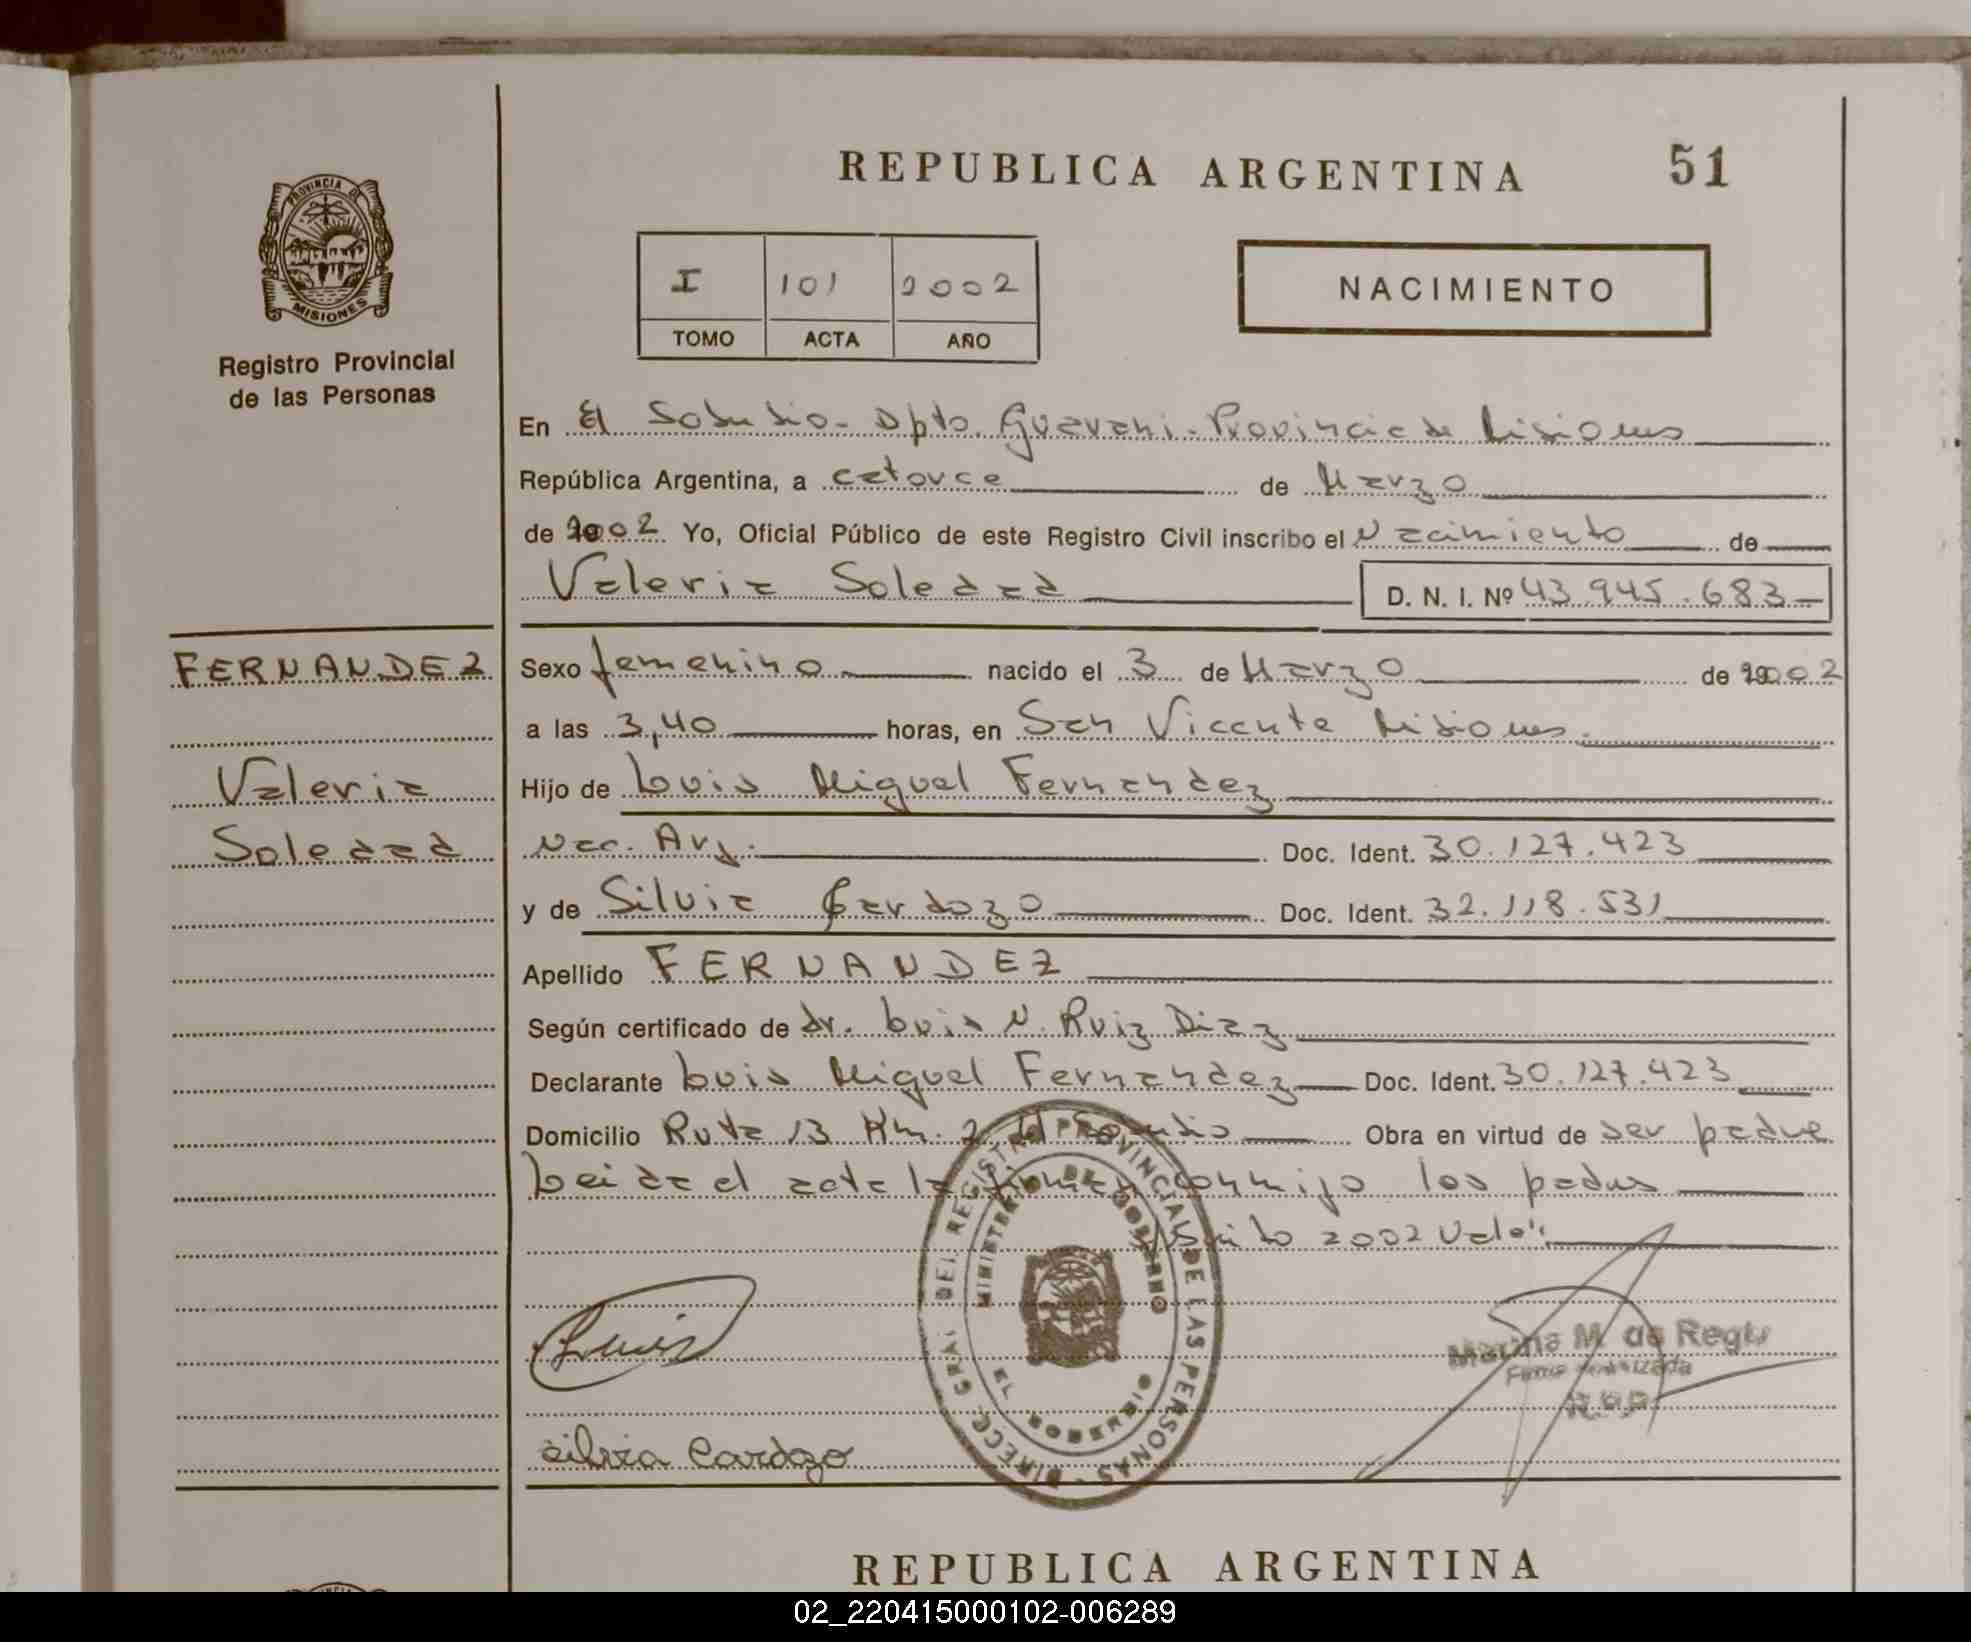 REPUBLICA ARGENTINA
51
PROVINCIA DE
MISIONES
Registro Provincial
de las Personas
I 101 2002
TOMO ACTA AÑO
NACIMIENTO
En El Soberbio - Dpto. Guarani - Provincia de Misiones
República Argentina, a catorce de Marzo
de 2002 Yo, Oficial Público de este Registro Civil inscribo el Nacimiento de
Valeria Soledad D. N. I. Nº 43.945.683
FERNANDEZ
Valeria
Soledad
Sexo femenino nacido el 3 de Marzo de 2002
a las 3,40 horas, en San Vicente Misiones.
Hijo de Luis Miguel Fernandez
Nac. Arg. Doc. Ident. 30.127.423
y de Silvia Cardozo Doc. Ident. 32.118.531
Apellido FERNANDEZ
Según certificado de dr. Luis N. Ruiz Diaz
Declarante Luis Miguel Fernandez Doc. Ident. 30.127.423
Domicilio Ruta 13 Km. 2 El Soberbio Obra en virtud de ser padre
Leida el acta la firman conmigo los padres
2002 Vale:
DIRECC. GRAL. DEL REGISTRO PROVINCIAL DE LAS PERSONAS
MINISTERIO DE GOBIERNO
EL SOBERBIO
Luis
Marina M. de
Silvia Cardozo
REPUBLICA ARGENTINA
02_220415000102-006289